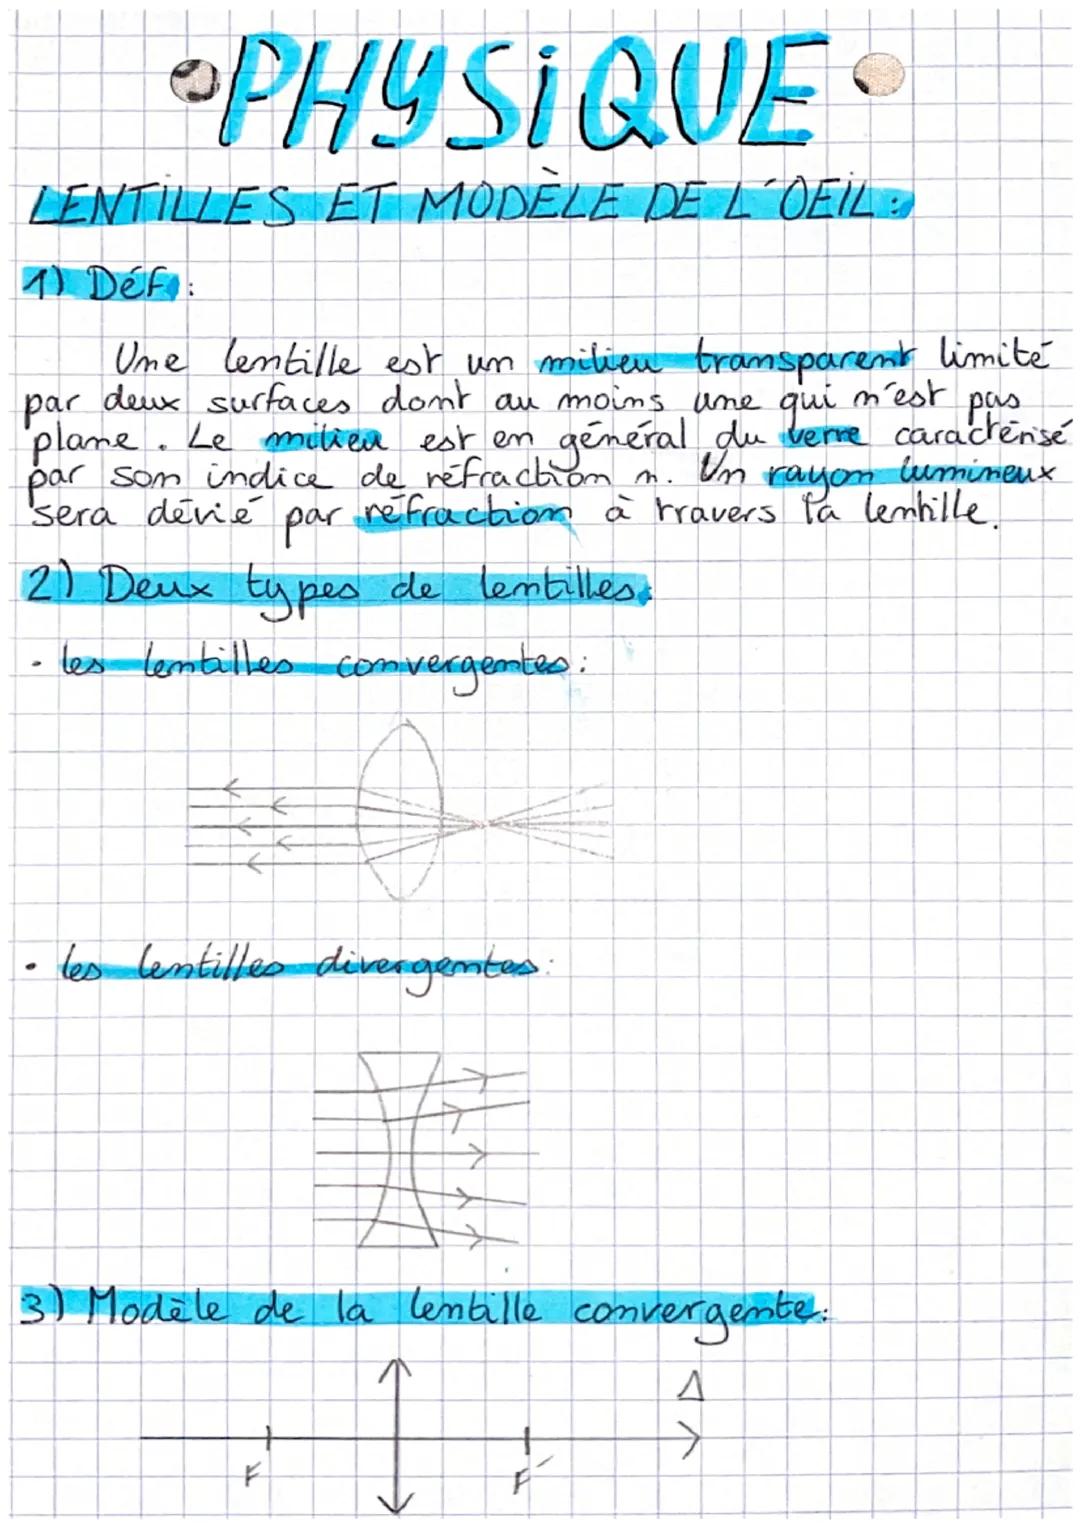 PHYSiQUE
LENTiLLES ET MODÈLE DE L'OEiL :
1) Déf :
Une lentille est un milieu transparent limité
par deux surfaces dont au moins une qui n'est pas
plane. Le milieu est en général du verre caractérisé
par son indice de réfraction n. Un rayon lumineux
sera dévié par réfraction à travers la lentille.
2) Deux types de lentilles :
• les lentilles convergentes :
• les lentilles divergentes :
3) Modèle de la lentille convergente :
Δ
F F'